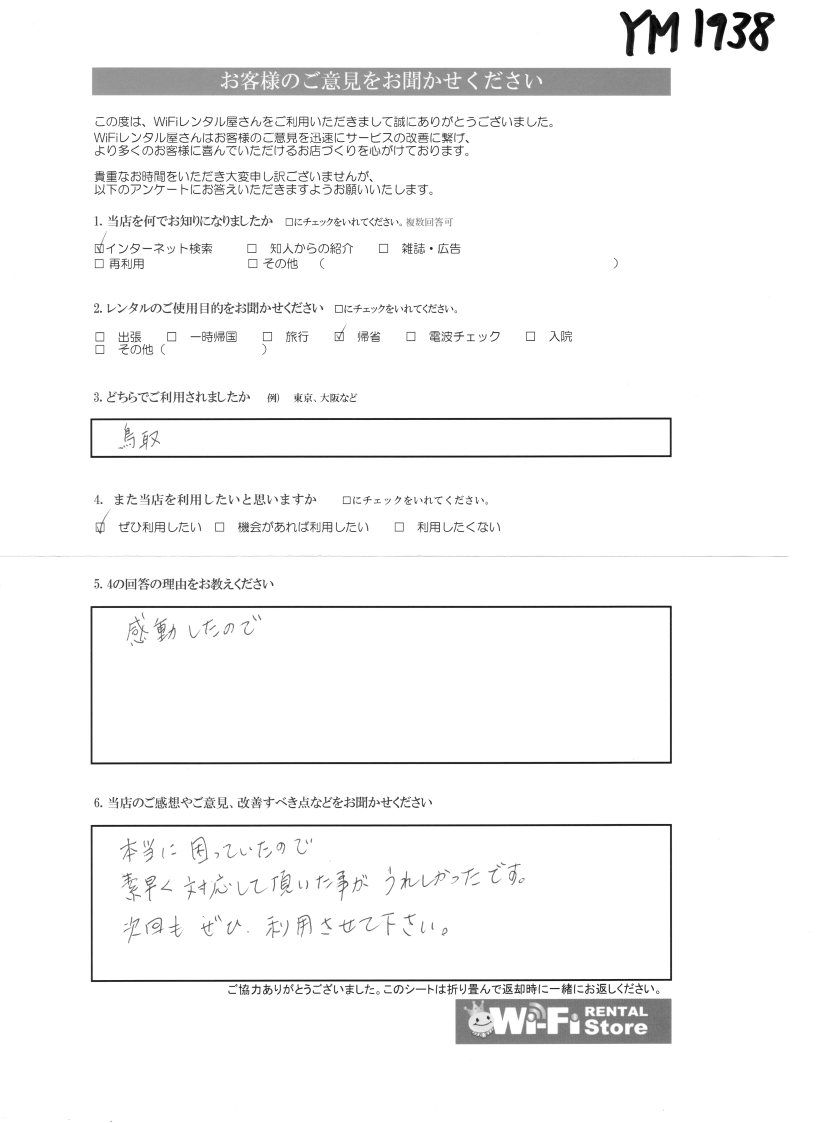 YM1938
お客様のご意見をお聞かせください
この度は、WiFiレンタル屋さんをご利用いただきまして誠にありがとうございました。
WiFiレンタル屋さんはお客様のご意見を迅速にサービスの改善に繋げ、
より多くのお客様に喜んでいただけるお店づくりを心がけております。
貴重なお時間をいただき大変申し訳ございませんが、
以下のアンケートにお答えいただきますようお願いいたします。
1. 当店を何でお知りになりましたか　□にチェックをいれてください。複数回答可
☑インターネット検索　□ 知人からの紹介　□ 雑誌・広告
□ 再利用　□ その他 （　）
2. レンタルのご使用目的をお聞かせください　□にチェックをいれてください。
□ 出張　□ 一時帰国　□ 旅行　☑ 帰省　□ 電波チェック　□ 入院
□ その他（　）
3. どちらでご利用されましたか　例）　東京、大阪など
鳥取
4. また当店を利用したいと思いますか　□にチェックをいれてください。
☑ ぜひ利用したい　□ 機会があれば利用したい　□ 利用したくない
5. 4の回答の理由をお教えください
感動したので
6. 当店のご感想やご意見、改善すべき点などをお聞かせください
本当に困っていたので
素早く対応して頂いた事がうれしかったです。
次回もぜひ利用させて下さい。
ご協力ありがとうございました。このシートは折り畳んで返却時に一緒にお返しください。
Wi-Fi RENTAL Store